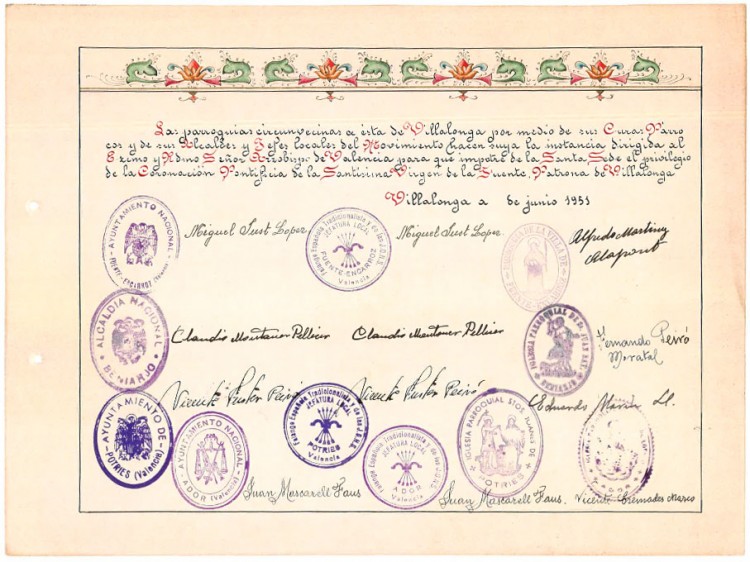 Las parroquias circunvecinas a ésta de Villalonga por medio de sus Curas Párro
cos y de sus Alcaldes y Jefes locales del Movimiento hacen suya la instancia dirigida al
Excmo y Rdmo Señor Arzobispo de Valencia para que impetre de la Santa Sede el privilegio
de la Coronación Pontificia de la Santísima Virgen de la Fuente, Patrona de Villalonga
Villalonga a 6 de junio 1951
AYUNTAMIENTO NACIONAL
FUENTE-ENCARROZ
Miguel Just Lopez
Falange Española Tradicionalista y de las J.O.N.S.
JEFATURA LOCAL
FUENTE-ENCARROZ
Valencia
Miguel Just Lopez
Alfredo Martinez
Alapont
ALCALDIA NACIONAL
BENIARJO
Claudio Montaner Pellicer
Claudio Montaner Pellicer
IGLESIA PARROQUIAL DE
BENIARJO
Fernando Peiró
Moratal
AYUNTAMIENTO DE
POTRIES (Valencia)
Vicente Pastor Peiró
Falange Española Tradicionalista y de las J.O.N.S.
JEFATURA LOCAL
POTRIES
Valencia
Vicente Pastor Peiró
IGLESIA PARROQUIAL STOS. JUANES DE
POTRIES
Eduardo Marín Ll.
AYUNTAMIENTO NACIONAL
ADOR (Valencia)
Juan Mascarell Faus
Falange Española Tradicionalista y de las J.O.N.S.
JEFATURA LOCAL
ADOR
Valencia
Juan Mascarell Faus.
Vicente Cremades Marco